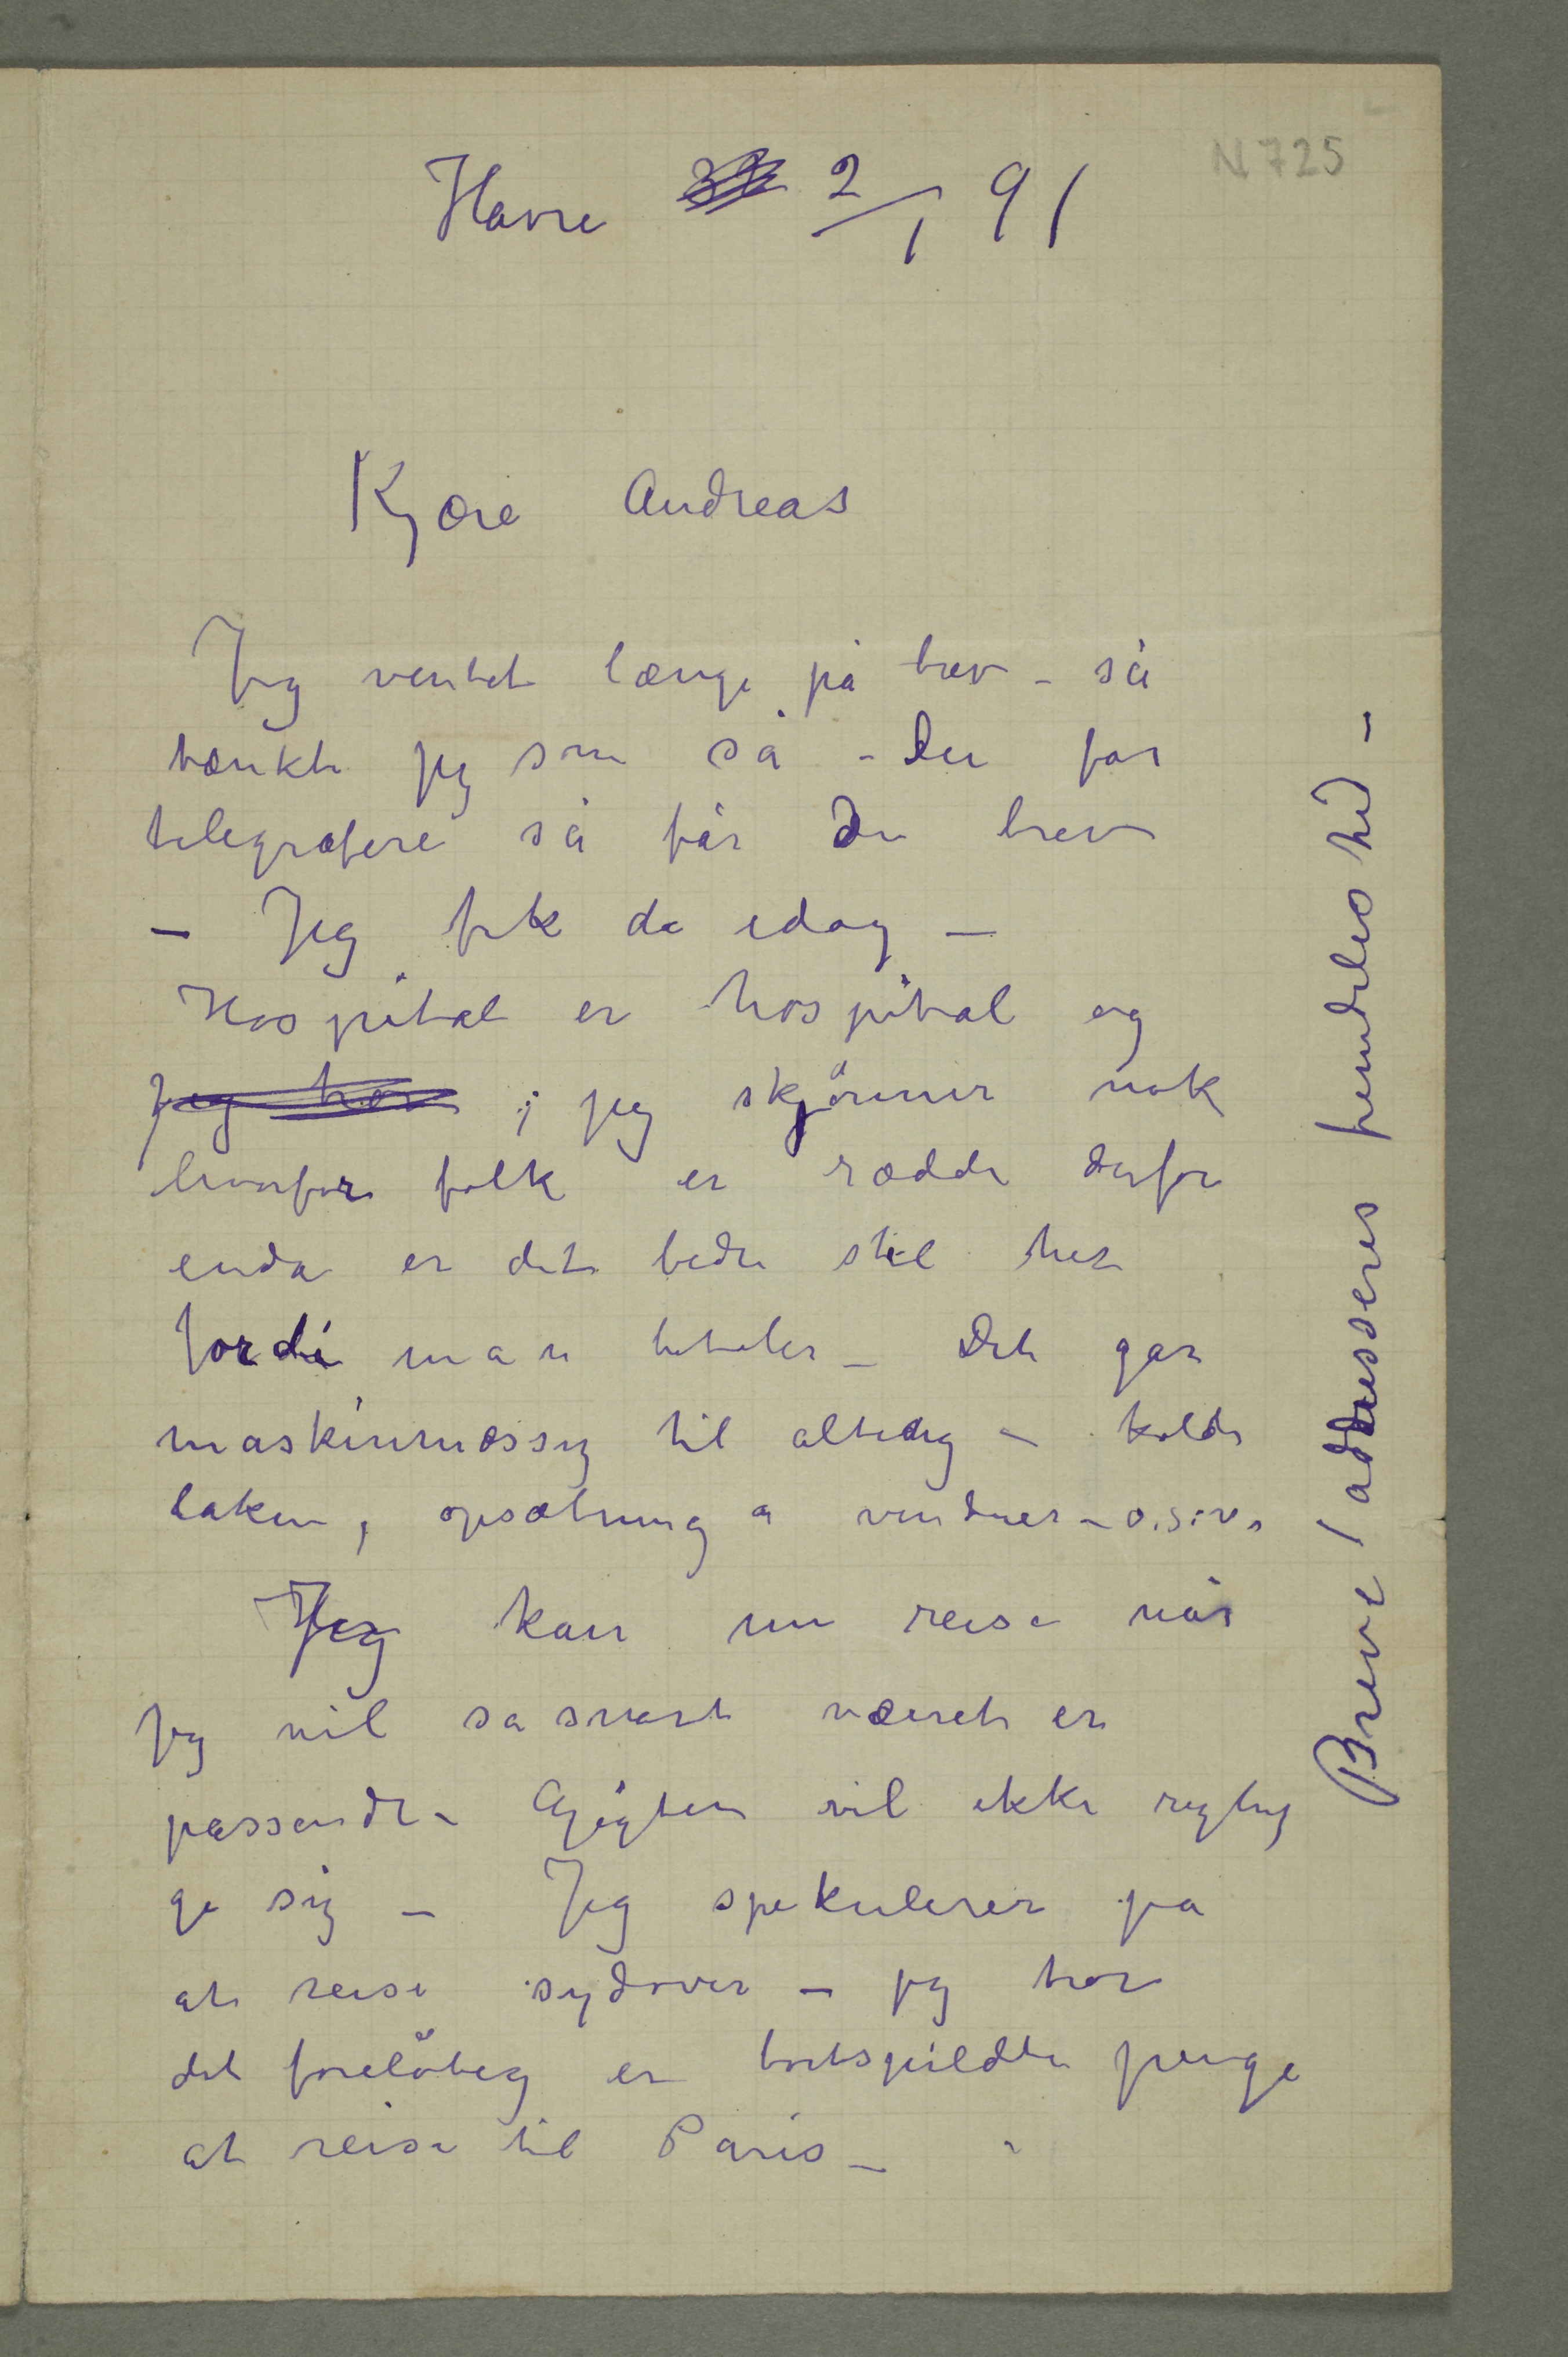 N 725
Havre 2/1 91
Kjære Andreas
Jeg ventet længe på brev – så
tænkte jeg som så – Du får
telegrafere så får Du brev
– Jeg fik da idag –
Hospital er hospital og
Jeg tror ; jeg skjönner nok
hvorfor folk er rædde derfor
enda er det bedre stel her
fordi man betaler – Det går
maskinmæssig til alting – kolde
laken, opsætning a vinduer – o.s.v.
Jeg kan nu reise når
jeg vil så snart væiret er
passende – Gigten vil ikke rigtig
ge sig – Jeg spekulerer på
at reise sydover – jeg tror
det forelöbig er bortspildte penge
at reise til Paris –
Breve / addresseres fremdeles hid –